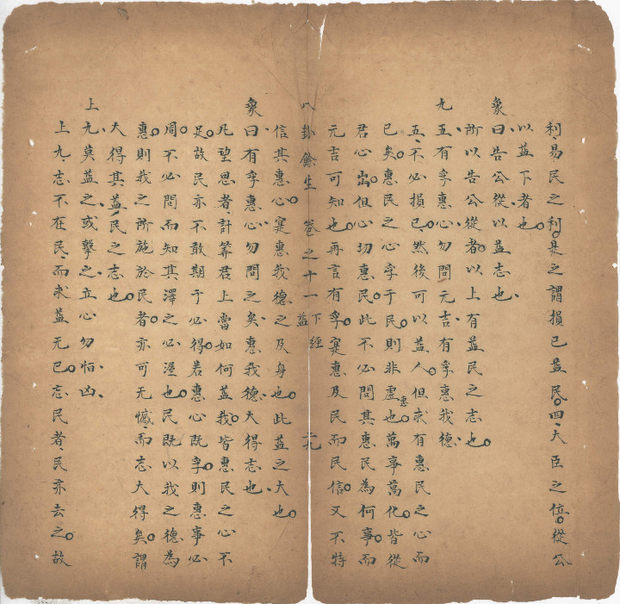 利易民之利是之謂損已益民四大臣之位從公
以益下者也
象曰告公從以益志也
所以告公從者以上有益民之志也
九五有孚惠心勿問元吉有孚惠我德
五不必損已然後可以益人但求有惠民之心而
已矣惠民之心孚于民則非虛惠也萬事萬化皆從
君心出但心切惠民此不必問其惠民為何事而
元吉可知也再言有孚寔惠及民而民信又不特
八卦餘生 卷之十一 下經 益 元
信其惠心寔惠我德之及身也此益之大也
象曰有孚惠心勿問之矣惠我德大得志也
凡望恩者計筭君上當如何益我皆惠民之心不
足故民亦不敢期于必得若惠心既孚則惠事必
周不必問而知其澤之必渥也民既以我之德為
惠則我之所施於民者亦可无憾而志大得矣謂
大得其益民之志也
上九莫益之或擊之立心勿恒凶
上九志不在民而求益无已忘民者民亦去之故